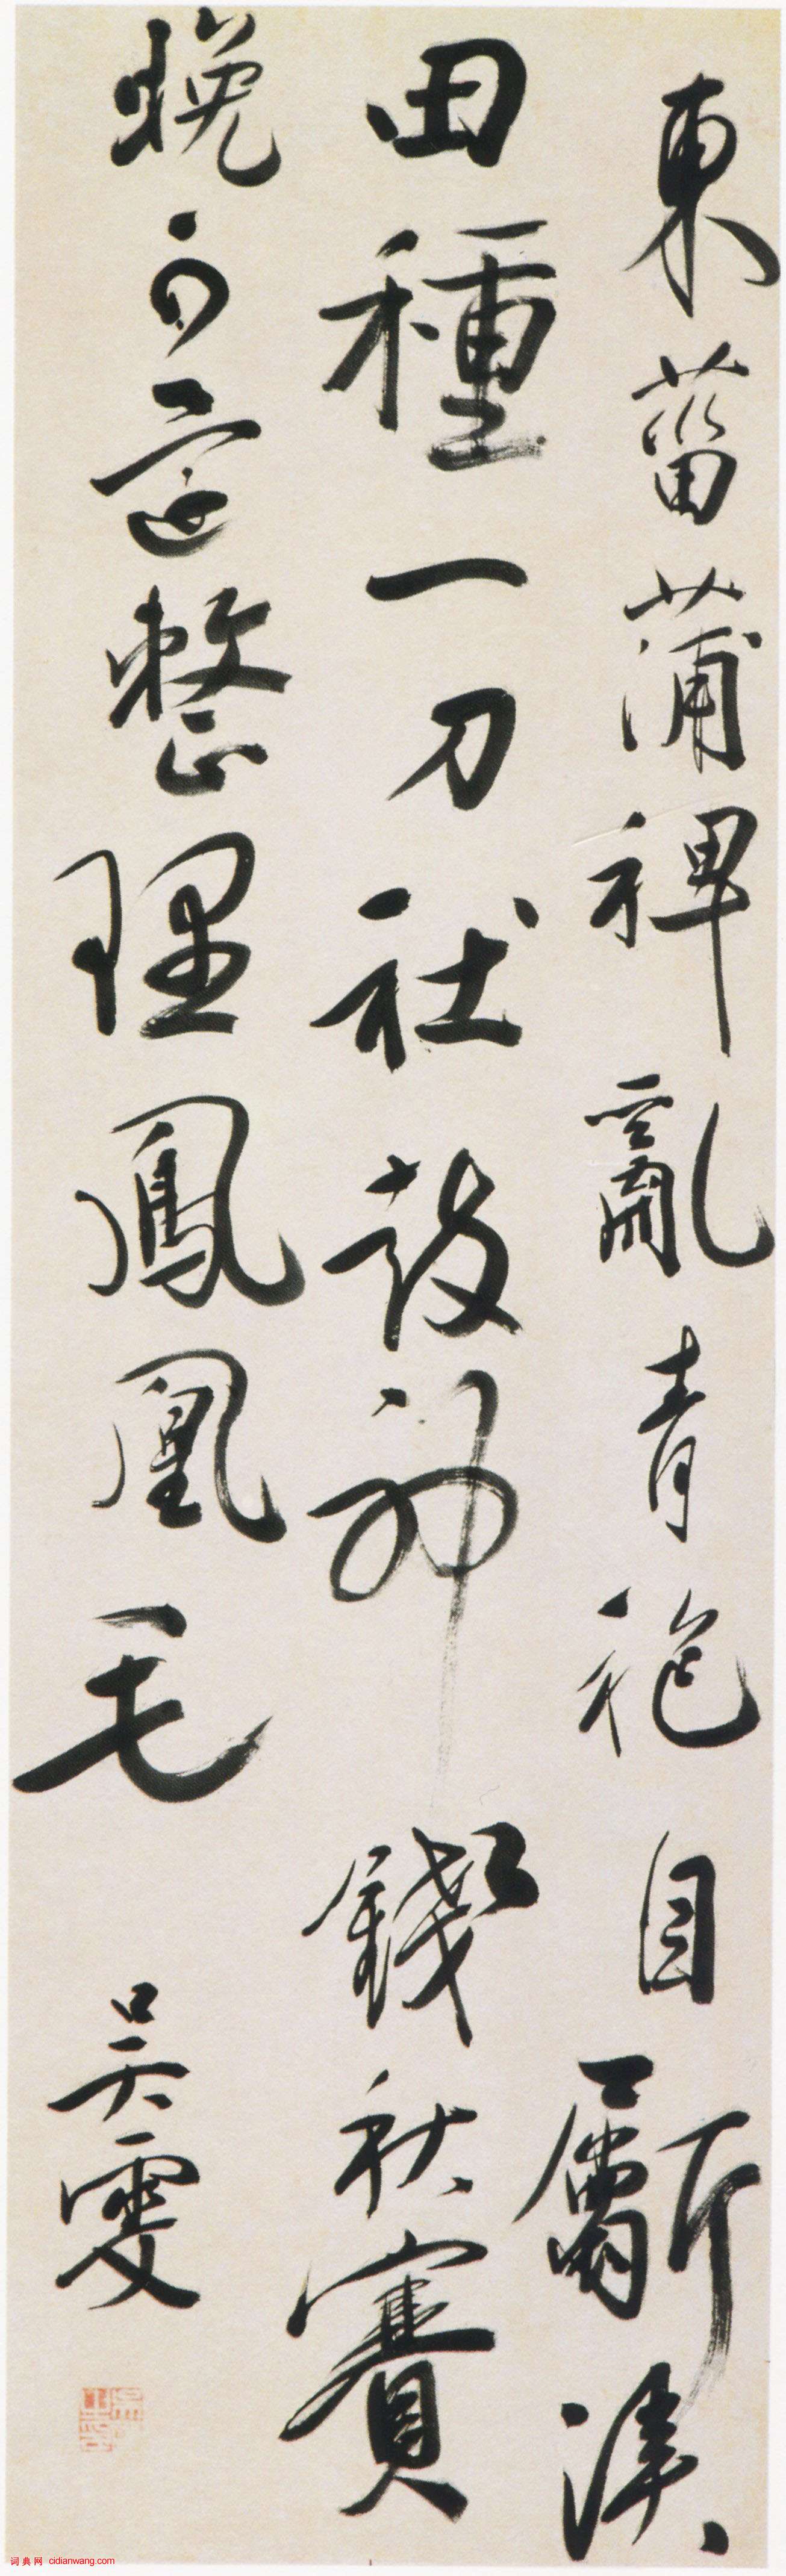 東菑蒲稗亂青袍自斸溪
田種一刀社鼓神錢秋賽
晚可整理鳳凰毛
吳雯
词典网 cidianwang.com